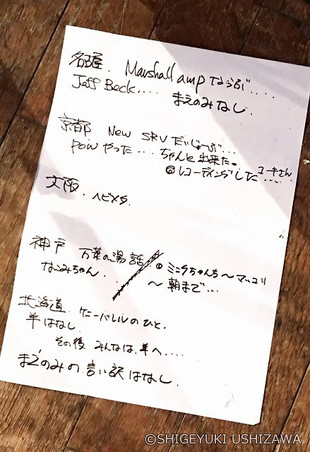 名古屋. Marshall amp ならぶ....
Jeff Beck.... まえのみなし
京都 New SRV だいじょーぶ...
pow やった... ちゃんと出来た。
レコーディングした....
コーチさん
大阪. ヘビメタ.
神戸 万葉の湯
なふみちゃん.
ミニタちゃんち〜マッコリ
〜朝まで...
北海道. のひと.
羊はなし.
その後 みんなは、羊へ....
まえのみの言い訳はなし.
©SHIGEYUKI USHIZAWA